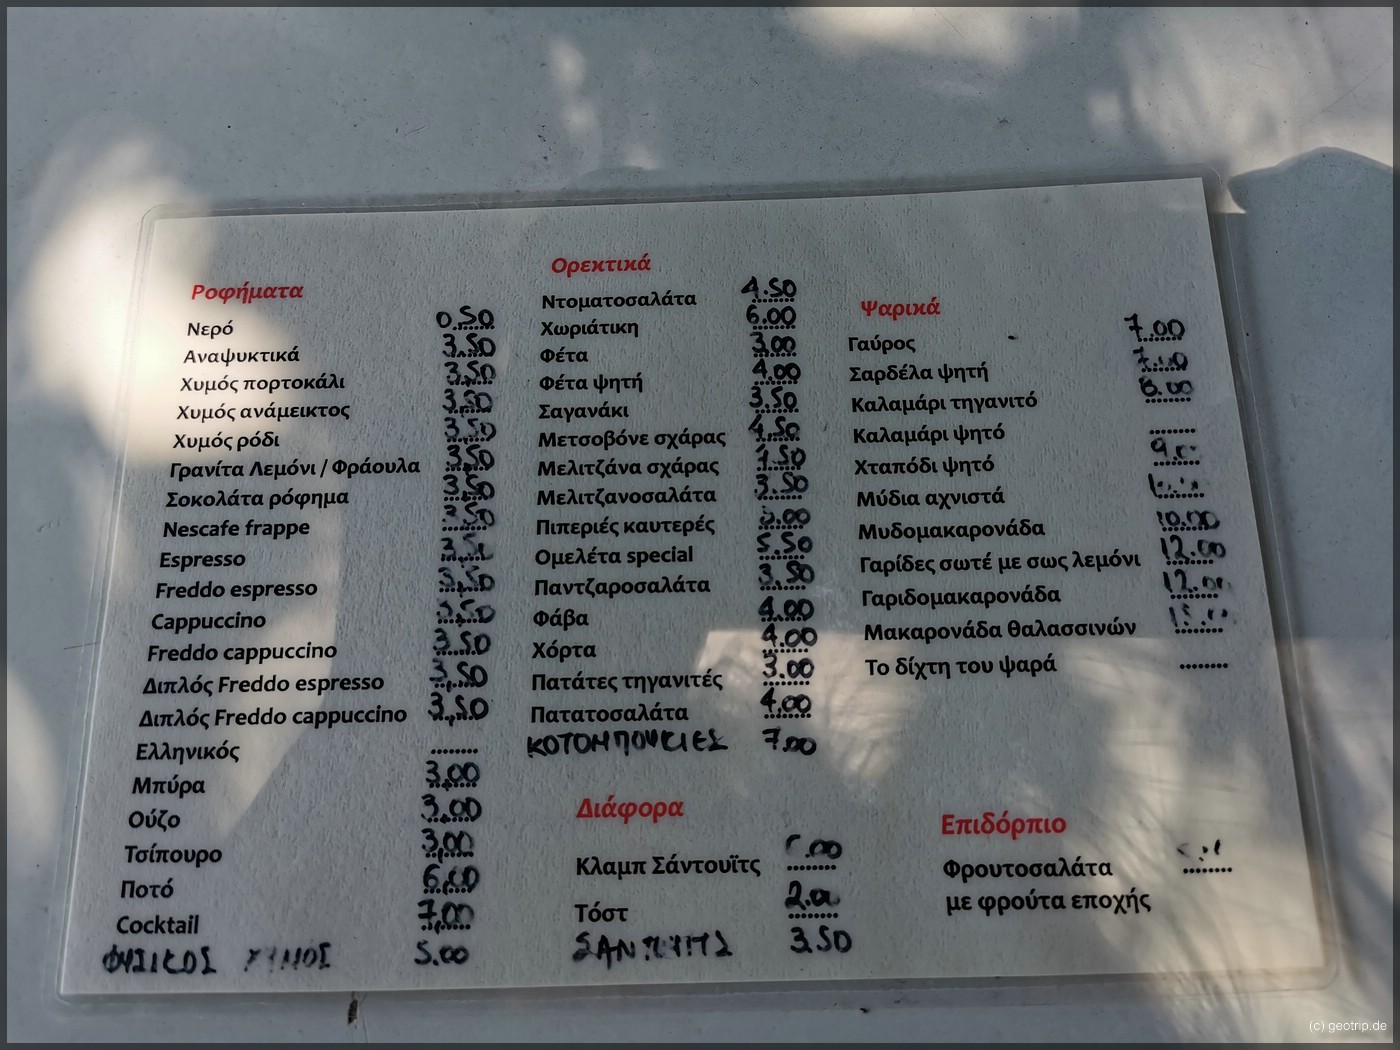 Ροφήματα
Νερό 0.50
Αναψυκτικά 3.50
Χυμός πορτοκάλι 3.50
Χυμός ανάμεικτος 3.50
Χυμός ρόδι 3.50
Γρανίτα Λεμόνι / Φράουλα 3.50
Σοκολάτα ρόφημα 3.50
Nescafe frappe 3.50
Espresso 3.50
Freddo espresso 3.50
Cappuccino 3.50
Freddo cappuccino 3.50
Διπλός Freddo espresso 3.50
Διπλός Freddo cappuccino 3.50
Ελληνικός ........
Μπύρα 3.00
Ούζο 3.00
Τσίπουρο 3.00
Ποτό 6.00
Cocktail 7.00
ΦΥΣΙΚΟΣ ΧΥΜΟΣ 5.00
Ορεκτικά
Ντοματοσαλάτα 4.50
Χωριάτικη 6.00
Φέτα 3.00
Φέτα ψητή 4.00
Σαγανάκι 3.50
Μετσοβόνε σχάρας 4.50
Μελιτζάνα σχάρας
Μελιτζανοσαλάτα 3.50
Πιπεριές καυτερές
Ομελέτα special 5.50
Παντζαροσαλάτα 3.50
Φάβα 4.00
Χόρτα 4.00
Πατάτες τηγανιτές 3.00
Πατατοσαλάτα 4.00
ΚΟΤΟΜΠΟΥΚΙΕΣ 7.00
Διάφορα
Κλαμπ Σάντουϊτς
Τόστ 2.00
ΣΑΝΤΟΥΙΤΣ 3.50
Ψαρικά
Γαύρος 7.00
Σαρδέλα ψητή 7.00
Καλαμάρι τηγανιτό 8.00
Καλαμάρι ψητό ........
Χταπόδι ψητό
Μύδια αχνιστά
Μυδομακαρονάδα 10.00
Γαρίδες σωτέ με σως λεμόνι 12.00
Γαριδομακαρονάδα 12.00
Μακαρονάδα θαλασσινών
Το δίχτη του ψαρά ........
Επιδόρπιο
Φρουτοσαλάτα
με φρούτα εποχής
(c) geotrip.de